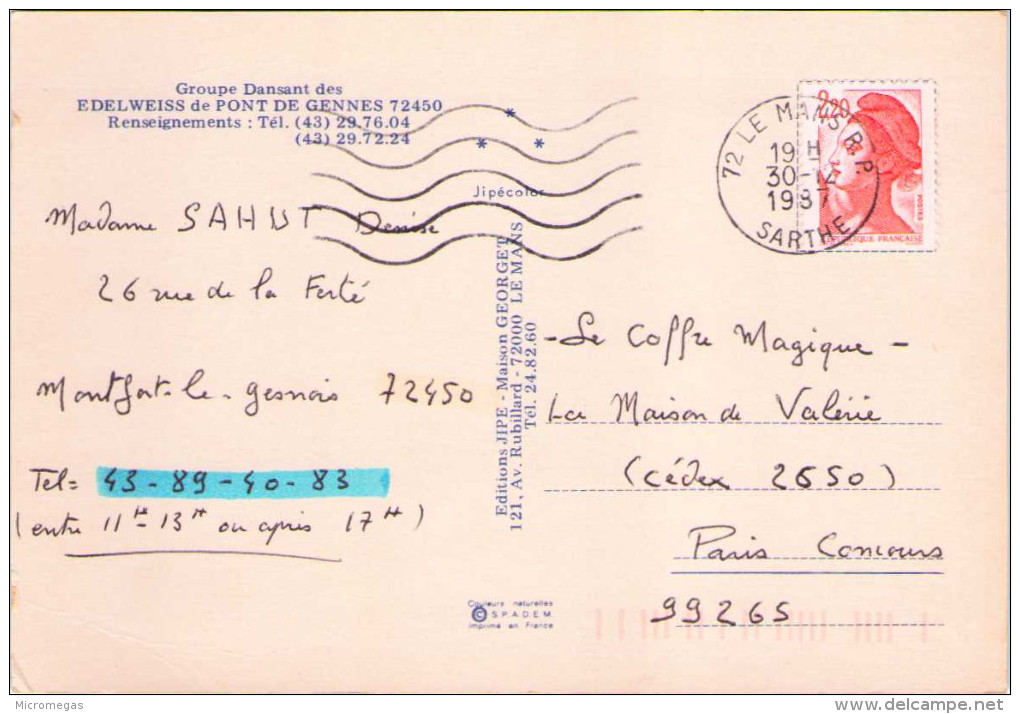 Groupe Dansant des
EDELWEISS de PONT DE GENNES 72450
Renseignements : Tél. (43) 29.76.04
(43) 29.72.24
Jipécolor
Madame SAHUT Denise
26 rue de la Ferté
Montfort-le-gesnois 72450
Tel= 43-89-40-83
(entre 11H-13H ou après 17H)
Editions JIPE - Maison GEORGET
121, Av. Rubillard - 72000 LE MANS
Tél. 24.82.60
Couleurs naturelles
© S.P.A.D.E.M.
Imprimé en France
2,20
POSTES
REPUBLIQUE FRANÇAISE
72 LE MANS R.P
19H
30-12
1987
SARTHE
-Le Coffre Magique-
La Maison de Valérie
(Cédex 2650)
Paris Concours
99265
Micromegas
delcampe.net